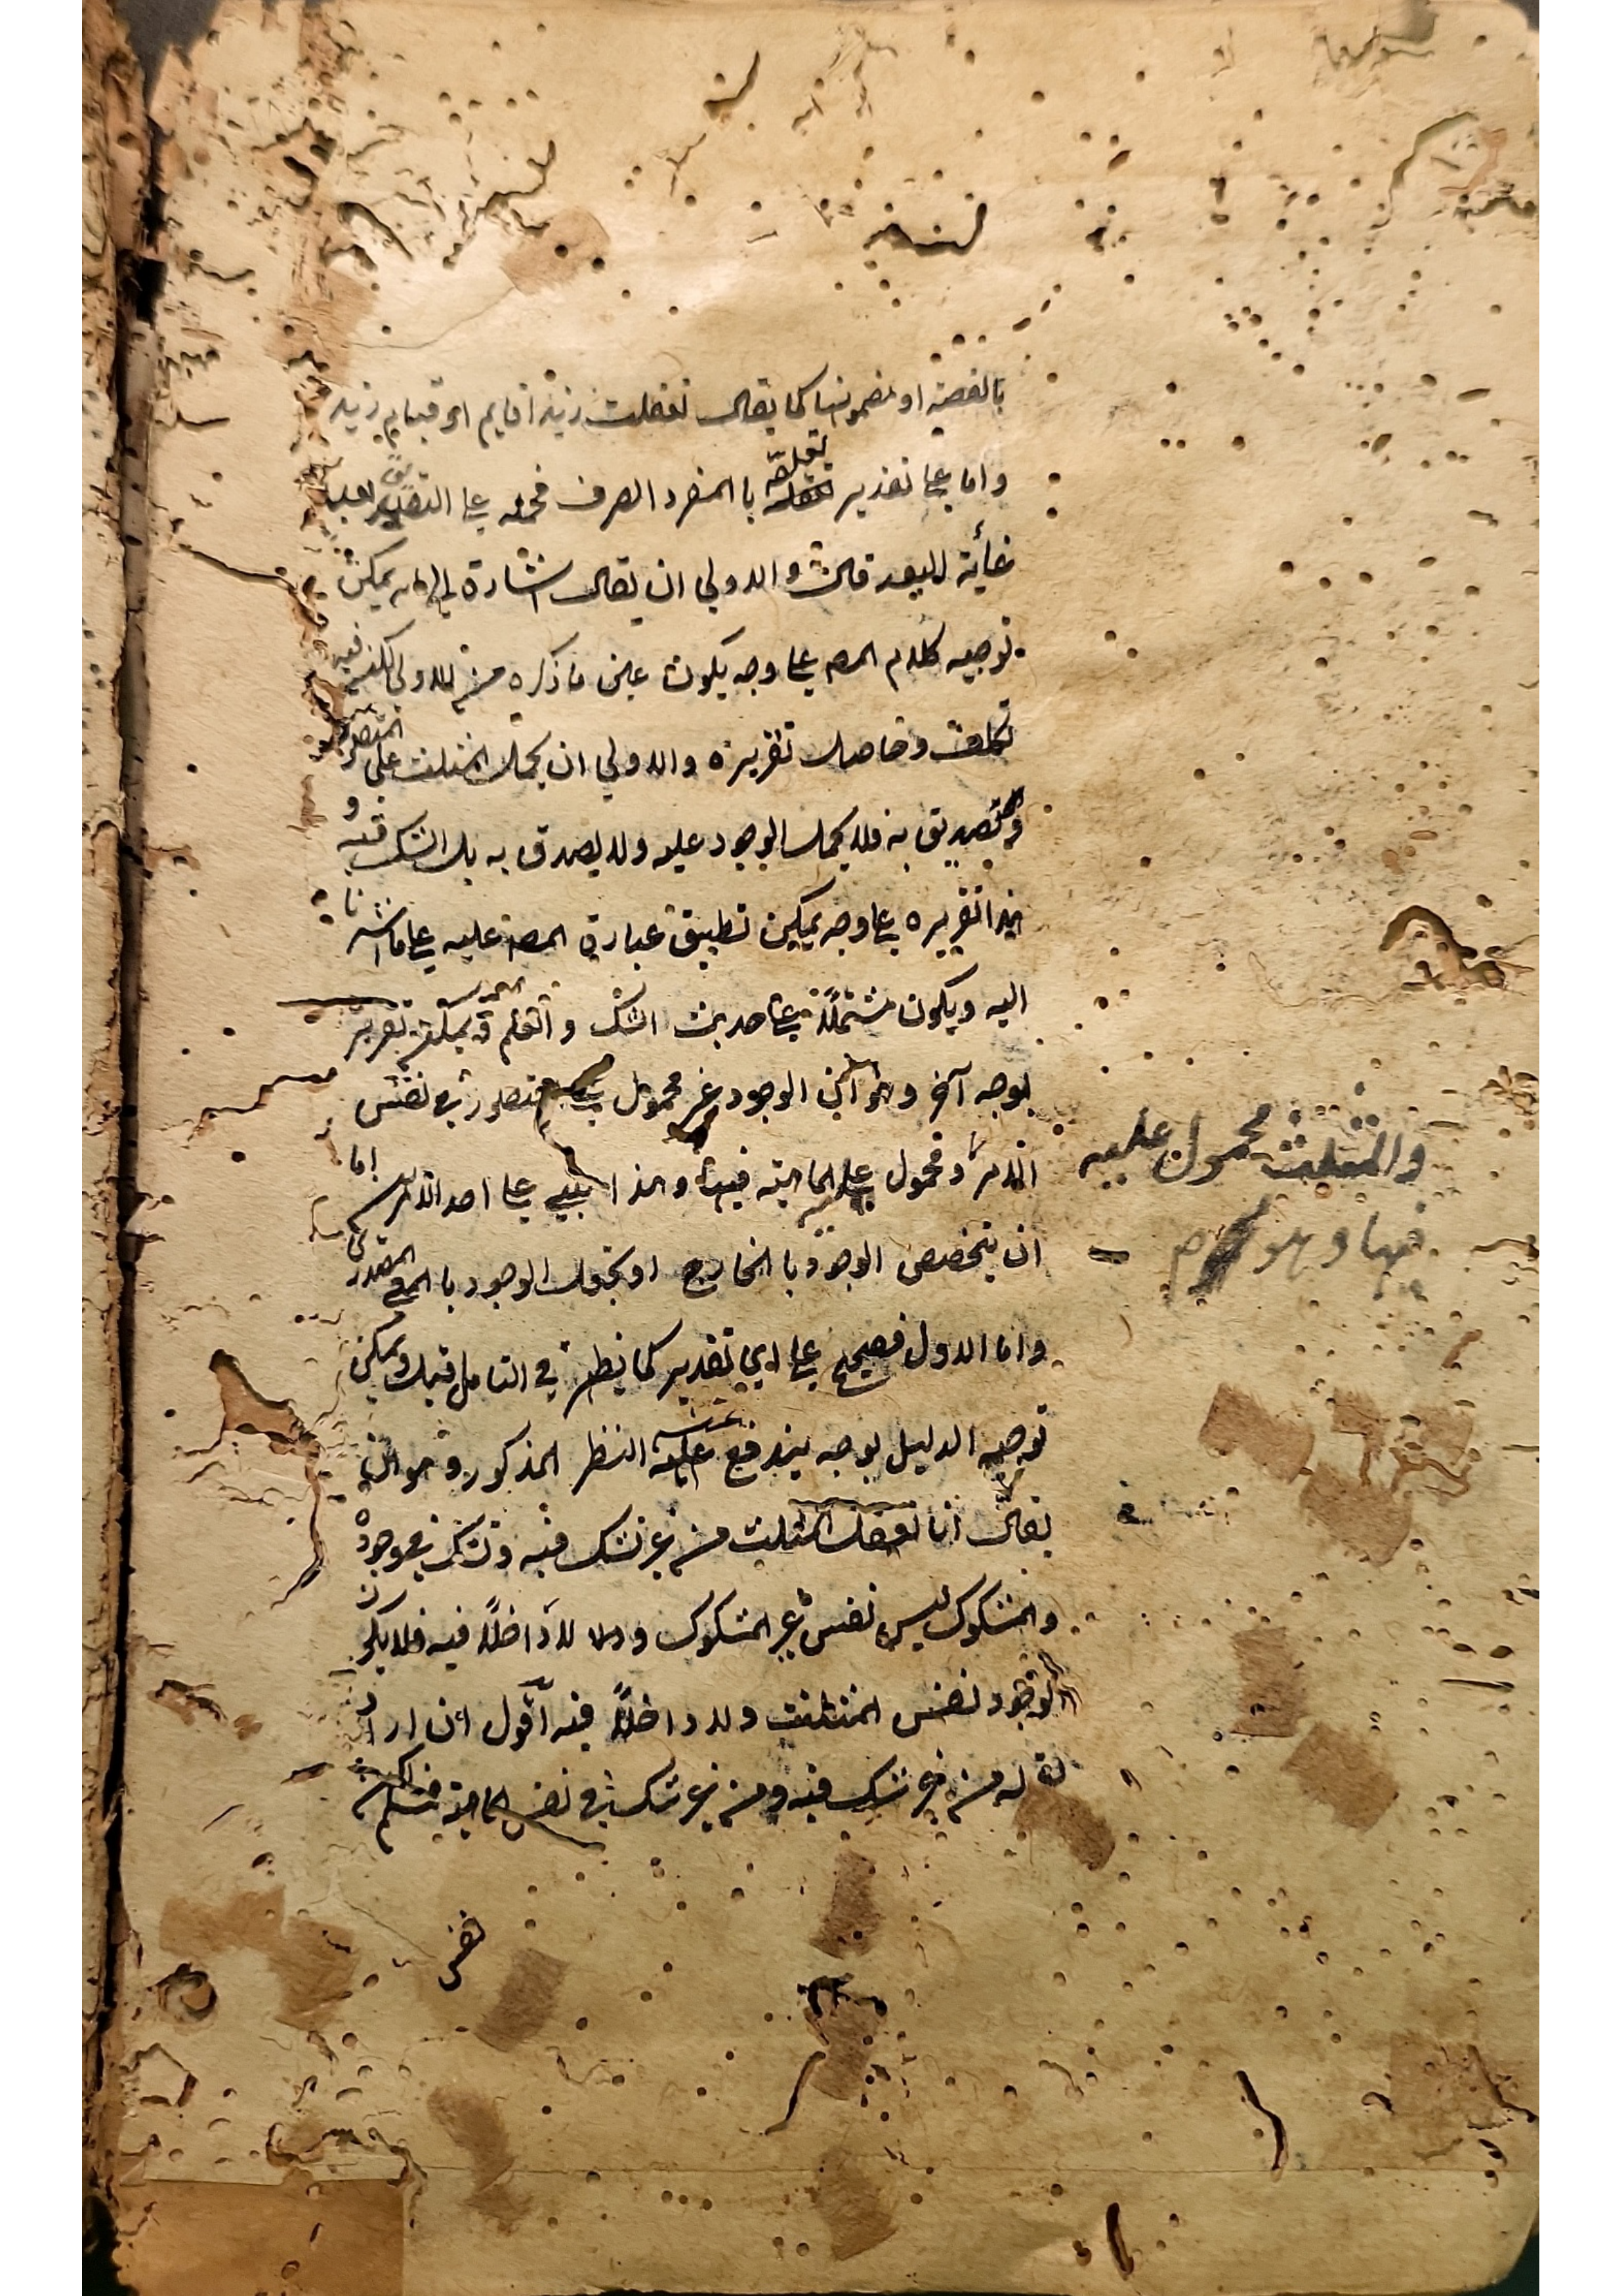 بالقضية او بمضمونها كما يقال تعقلت زيد اقايم اى قيام زيد
واما على تقدير تعلقه با المفرد الصرف فحمله على التصديق بعيد
غاية البعد قال والاولي ان يقال اشارة الى انه يمكن
توجيه كلام المصـ على وجه يكون عين ما ذكره من الاولى لكن فيه
تكلف وحاصل تقريره والاولي ان يحمل المثلث على المتصور
والتصديق به فلا يحمل الوجود عليه ولا يصدق به بل الشك فيه و
هذا تقريره على وجه يمكن تطبيق عبارة المصـ عليه على ما اشرنا
اليه ويكون مشتملاً على حديث الشك و يمكن تقرير
بوجه آخر وهو ان الوجود غير محمول متصور في نفس
الامر ومحمول على الماهية فيها وهذا يبتني على احد الامرين اما
ان يتخصص الوجود با الخارج او الوجود با المعنى المصدرى
واما الاول فصحيح على اي تقدير كما يظهر في التامل قيل ويمكن
توجيه الدليل بوجه يندفع عنه النظر المذكور وهو ان
يقال انا نعقل المثلث من غير شك فيه ونشك في وجوده
والمشكوك ليس نفس غير المشكوك ولا داخلاً فيه فلا يكون
الوجود نفس المثلث ولا داخلاً فيه اقول ان اراد
بقوله من غير شك فيه من غير شك في نفس الماهية فمسلم لكن
نفس
والمثلث محمول عليه
فيها وهو